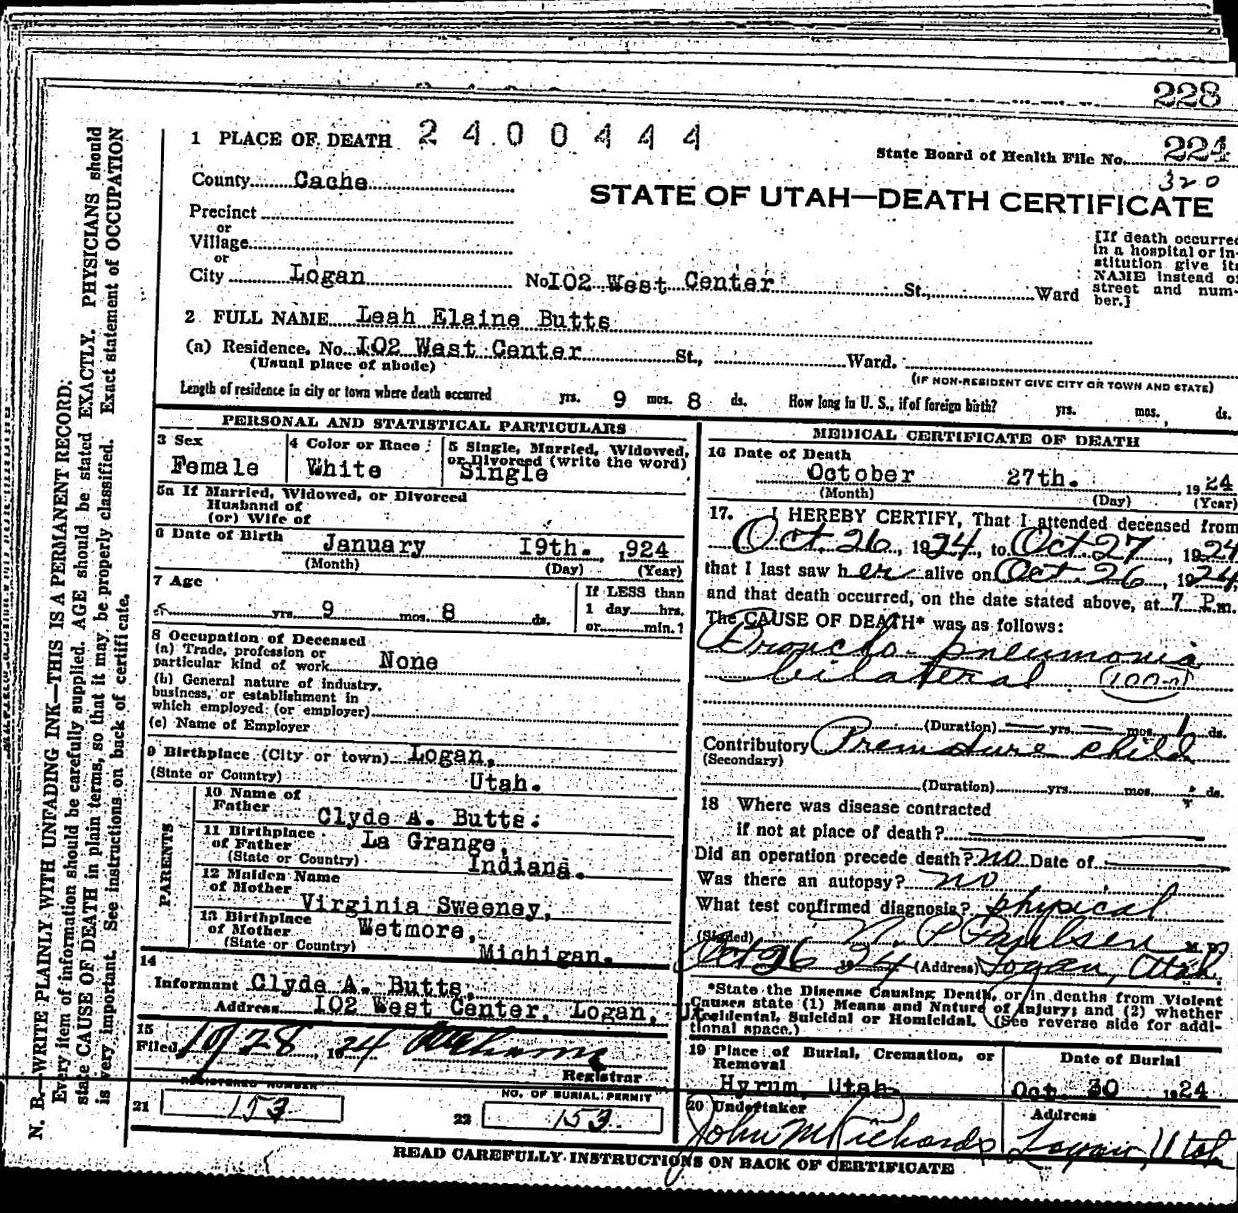 228
1 PLACE OF DEATH 2400444
State Board of Health File No. 224
320
County Cache
STATE OF UTAH—DEATH CERTIFICATE
Precinct
or
Village
or
City Logan No. I02 West Center St., Ward
[If death occurred
in a hospital or in-
stitution give its
NAME instead of
street and num-
ber.]
2 FULL NAME Leah Elaine Butts
(a) Residence. No. I02 West Center St., Ward.
(Usual place of abode)
(IF NON-RESIDENT GIVE CITY OR TOWN AND STATE)
Length of residence in city or town where death occurred yrs. 9 mos. 8 ds. How long in U. S., if of foreign birth? yrs. mos. ds.
PERSONAL AND STATISTICAL PARTICULARS
3 Sex
Female
4 Color or Race
White
5 Single, Married, Widowed,
or Divorced (write the word)
Single
5a If Married, Widowed, or Divorced
Husband of
(or) Wife of
6 Date of Birth January I9th. 1924
(Month) (Day) (Year)
7 Age
yrs. 9 mos. 8 ds.
If LESS than
1 day hrs.
or min.?
8 Occupation of Deceased
(a) Trade, profession or
particular kind of work None
(b) General nature of industry,
business, or establishment in
which employed (or employer)
(c) Name of Employer
9 Birthplace (City or town) Logan,
(State or Country) Utah.
PARENTS
10 Name of
Father
Clyde A. Butts.
11 Birthplace
of Father La Grange,
(State or Country) Indiana.
12 Maiden Name
of Mother
Virginia Sweeney,
13 Birthplace
of Mother Wetmore,
(State or Country) Michigan.
14
Informant Clyde A. Butts,
Address I02 West Center, Logan, U
15
Filed 10/28, 1924
Registrar
REGISTERED NUMBER
21 153
NO. OF BURIAL PERMIT
22 153
MEDICAL CERTIFICATE OF DEATH
16 Date of Death
October 27th. 1924
(Month) (Day) (Year)
17. I HEREBY CERTIFY, That I attended deceased from
Oct. 26, 1924, to Oct. 27, 1924
that I last saw her alive on Oct. 26, 1924,
and that death occurred, on the date stated above, at 7 P.m.
The CAUSE OF DEATH* was as follows:
Broncho-pneumonia
bilateral
(Duration) — yrs. — mos. 1 ds.
Contributory Premature child
(Secondary)
(Duration) yrs. mos. ds.
18 Where was disease contracted
if not at place of death?
Did an operation precede death? no Date of
Was there an autopsy? no
What test confirmed diagnosis? physical
(Signed) N. P. Paulsen M.D.
Oct 26 1924 (Address) Logan, Utah
*State the Disease Causing Death, or in deaths from Violent
Causes state (1) Means and Nature of Injury; and (2) whether
Accidental, Suicidal or Homicidal. (See reverse side for addi-
tional space.)
19 Place of Burial, Cremation, or
Removal
Hyrum, Utah
Date of Burial
Oct. 30 1924
20 Undertaker
John M Richards
Address
Logan, Utah
READ CAREFULLY INSTRUCTIONS ON BACK OF CERTIFICATE
N. B.—WRITE PLAINLY WITH UNFADING INK—THIS IS A PERMANENT RECORD.
Every item of information should be carefully supplied. AGE should be stated EXACTLY. PHYSICIANS should
state CAUSE OF DEATH in plain terms, so that it may be properly classified. Exact statement of OCCUPATION
is very important. See instructions on back of certificate.